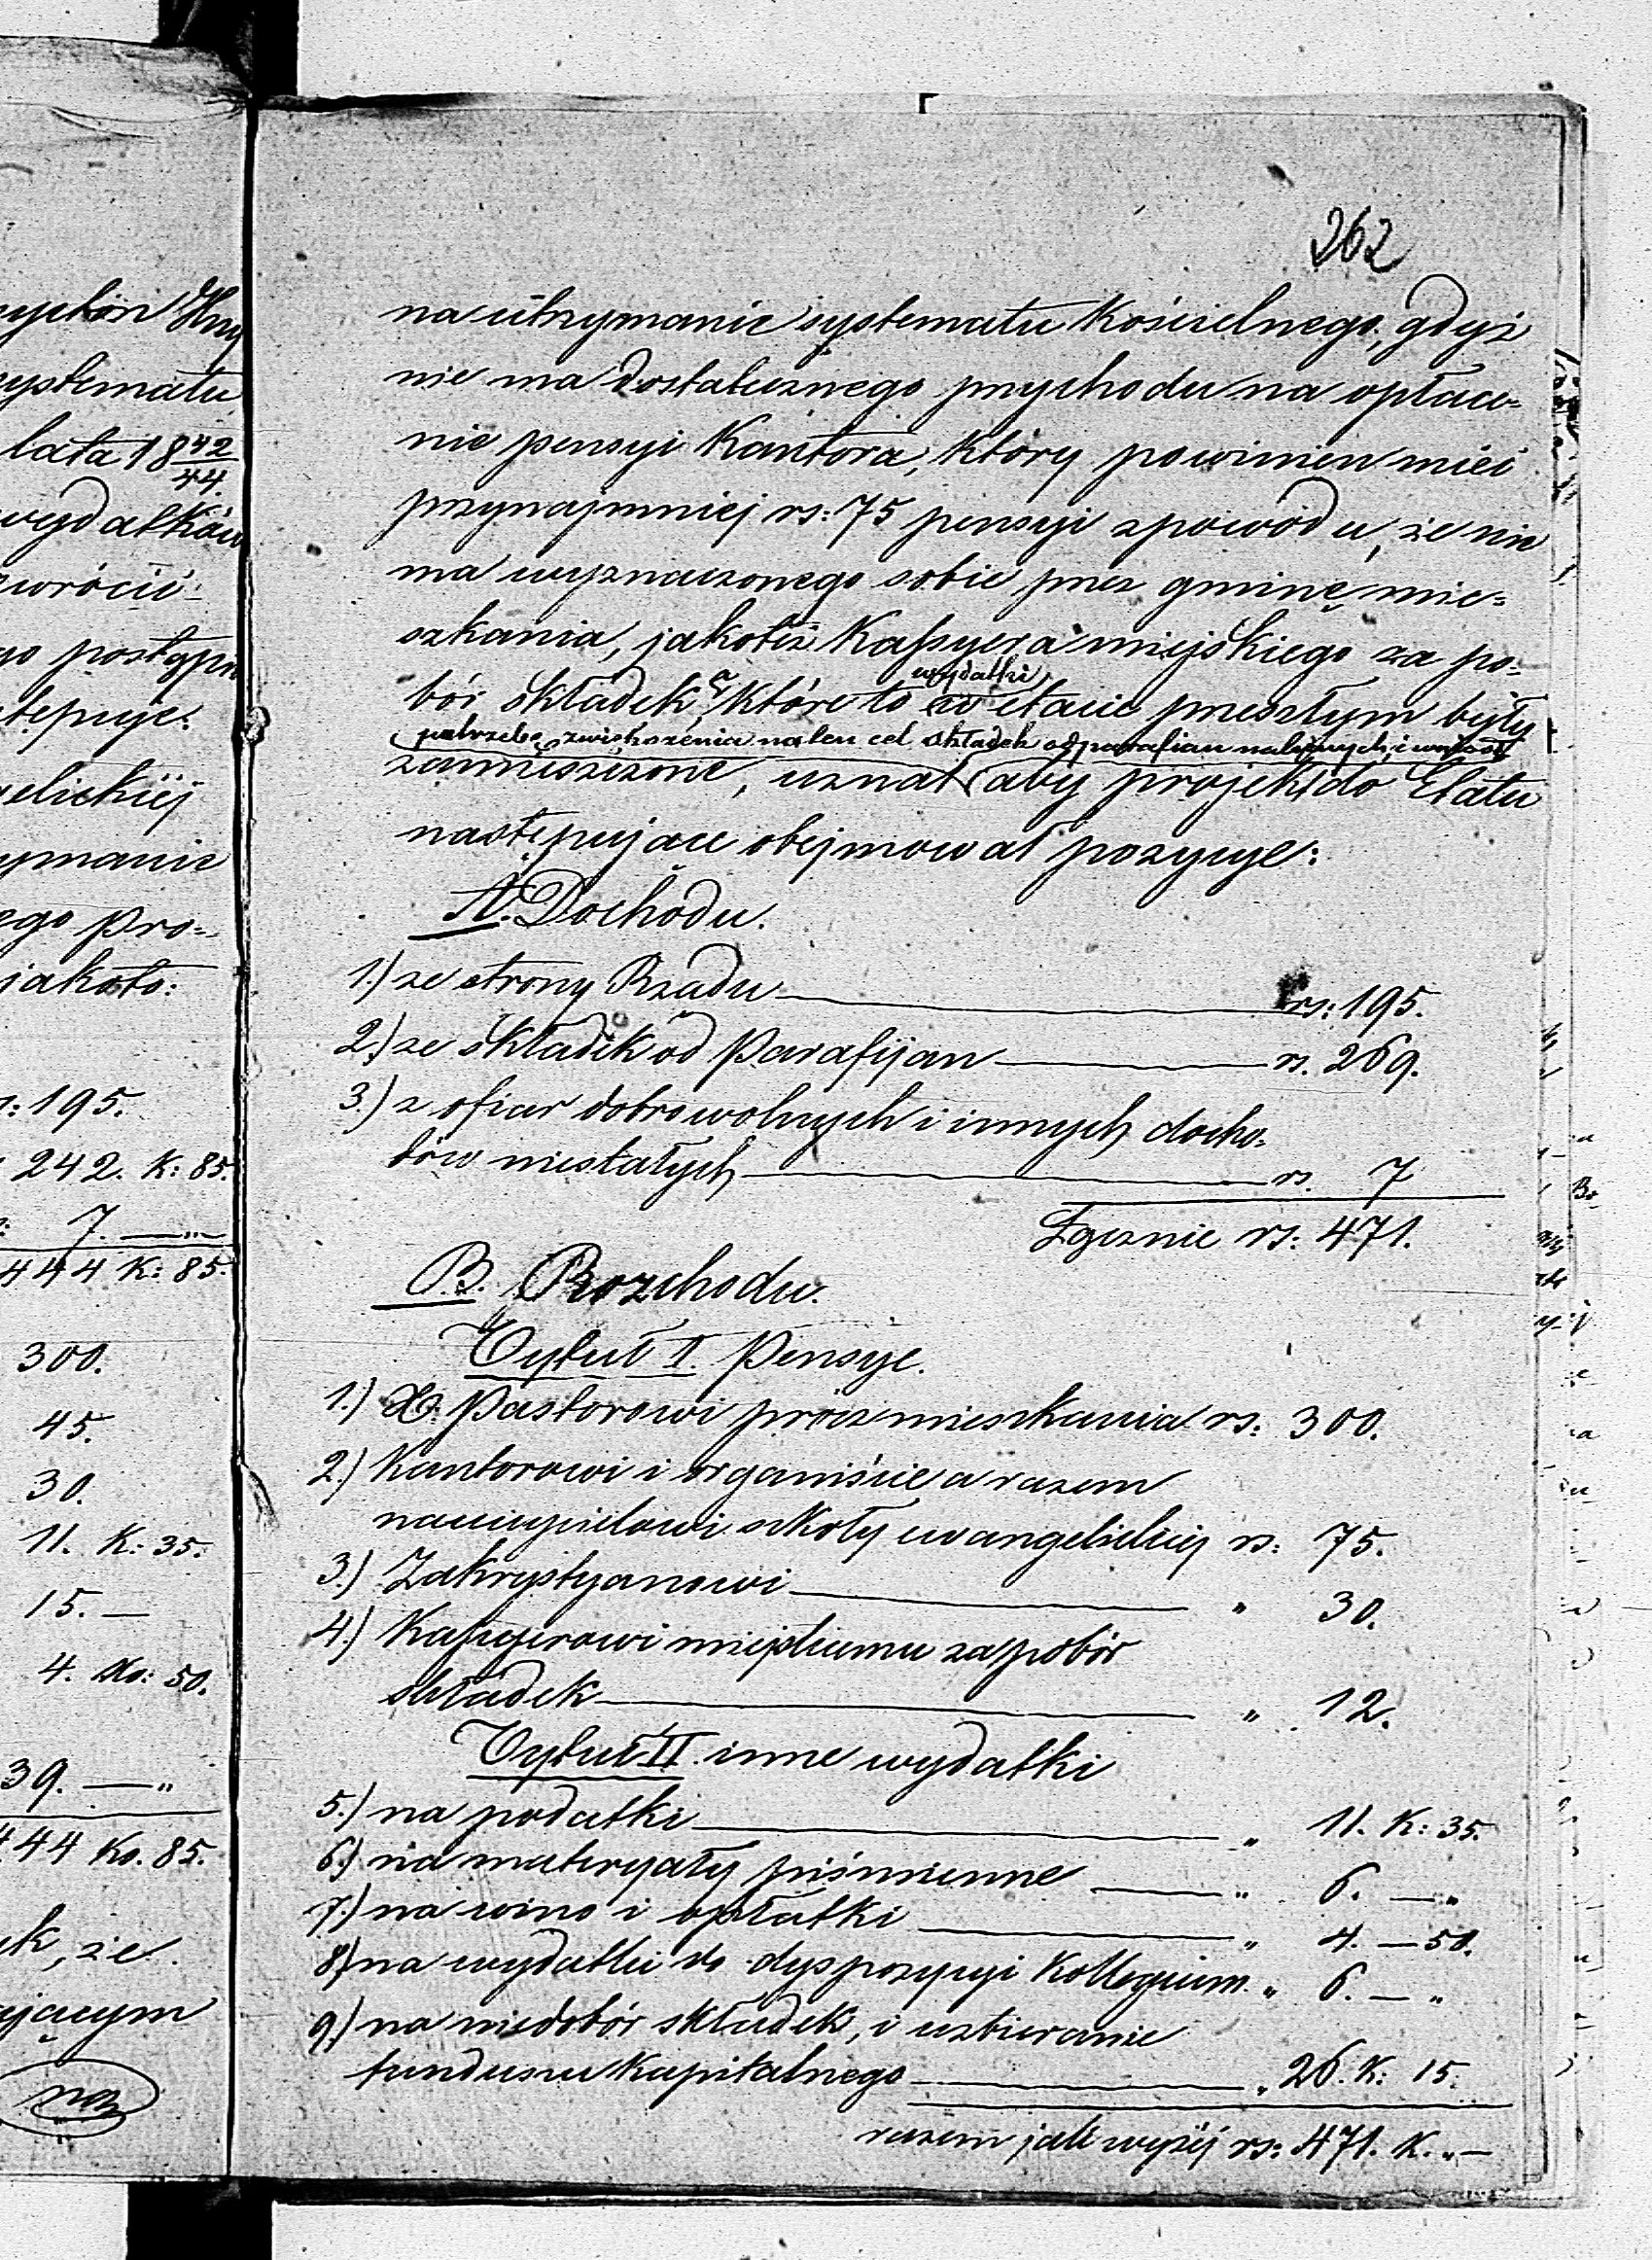 262
na utrzymanie systematu Kościelnego, gdyż
nie ma dostatecznego przychodu na opłace-
nie pensyi Kantora, który powinien mieć
przynajmniej rs: 75 pensyi z powodu, że nie
ma wyznaczonego sobie przez gminę mie=
szkania, jakoteż Kassyera miejskiego za po=
bór składek, a które to wydatki w etacie przeszłym były
zamieszczone, uznał potrzebę zwiększenia na ten cel składek od parafian należnych, i wniósł
aby projekt do Etatu
następujące obejmował pozycye:
A. Dochodu.
1.) ze strony Rządu rs: 195.
2.) ze składek od Parafijan rs. 269.
3.) z ofiar dobrowolnych i innych docho-
dów niestałych rs. 7
Łącznie rs: 471.
B. Rozchodu.
Tytuł I. Pensye.
1.) X. Pastorowi prócz mieszkania rs: 300.
2.) Kantorowi i organiście a razem
nauczycielowi szkoły ewangelickiej rs: 75.
3.) Zakrystyanowi " 30.
4.) Kassyerowi miejskiemu za pobór
składek " 12.
Tytuł II. inne wydatki
5.) na podatki " 11. K: 35.
6.) na materyały piśmienne " 6. — "
7.) na wino i opłatki " 4. — 50.
8.) na wydatki do dyspozycyi Kollegium " 6. — "
9.) na niedobór składek, i uzbieranie
funduszu Kapitalnego " 26. K: 15.
razem jak wyżej rs: 471. K. " —
systematu
lata 18 42/44.
wydatków
zwrócić
jakoto:
: 195.
242. K: 85.
7. — "
444 K: 85.
300.
45.
30.
11. K: 35.
15. —
4. Ko: 50.
39. — "
444 Ko. 85.
że
na